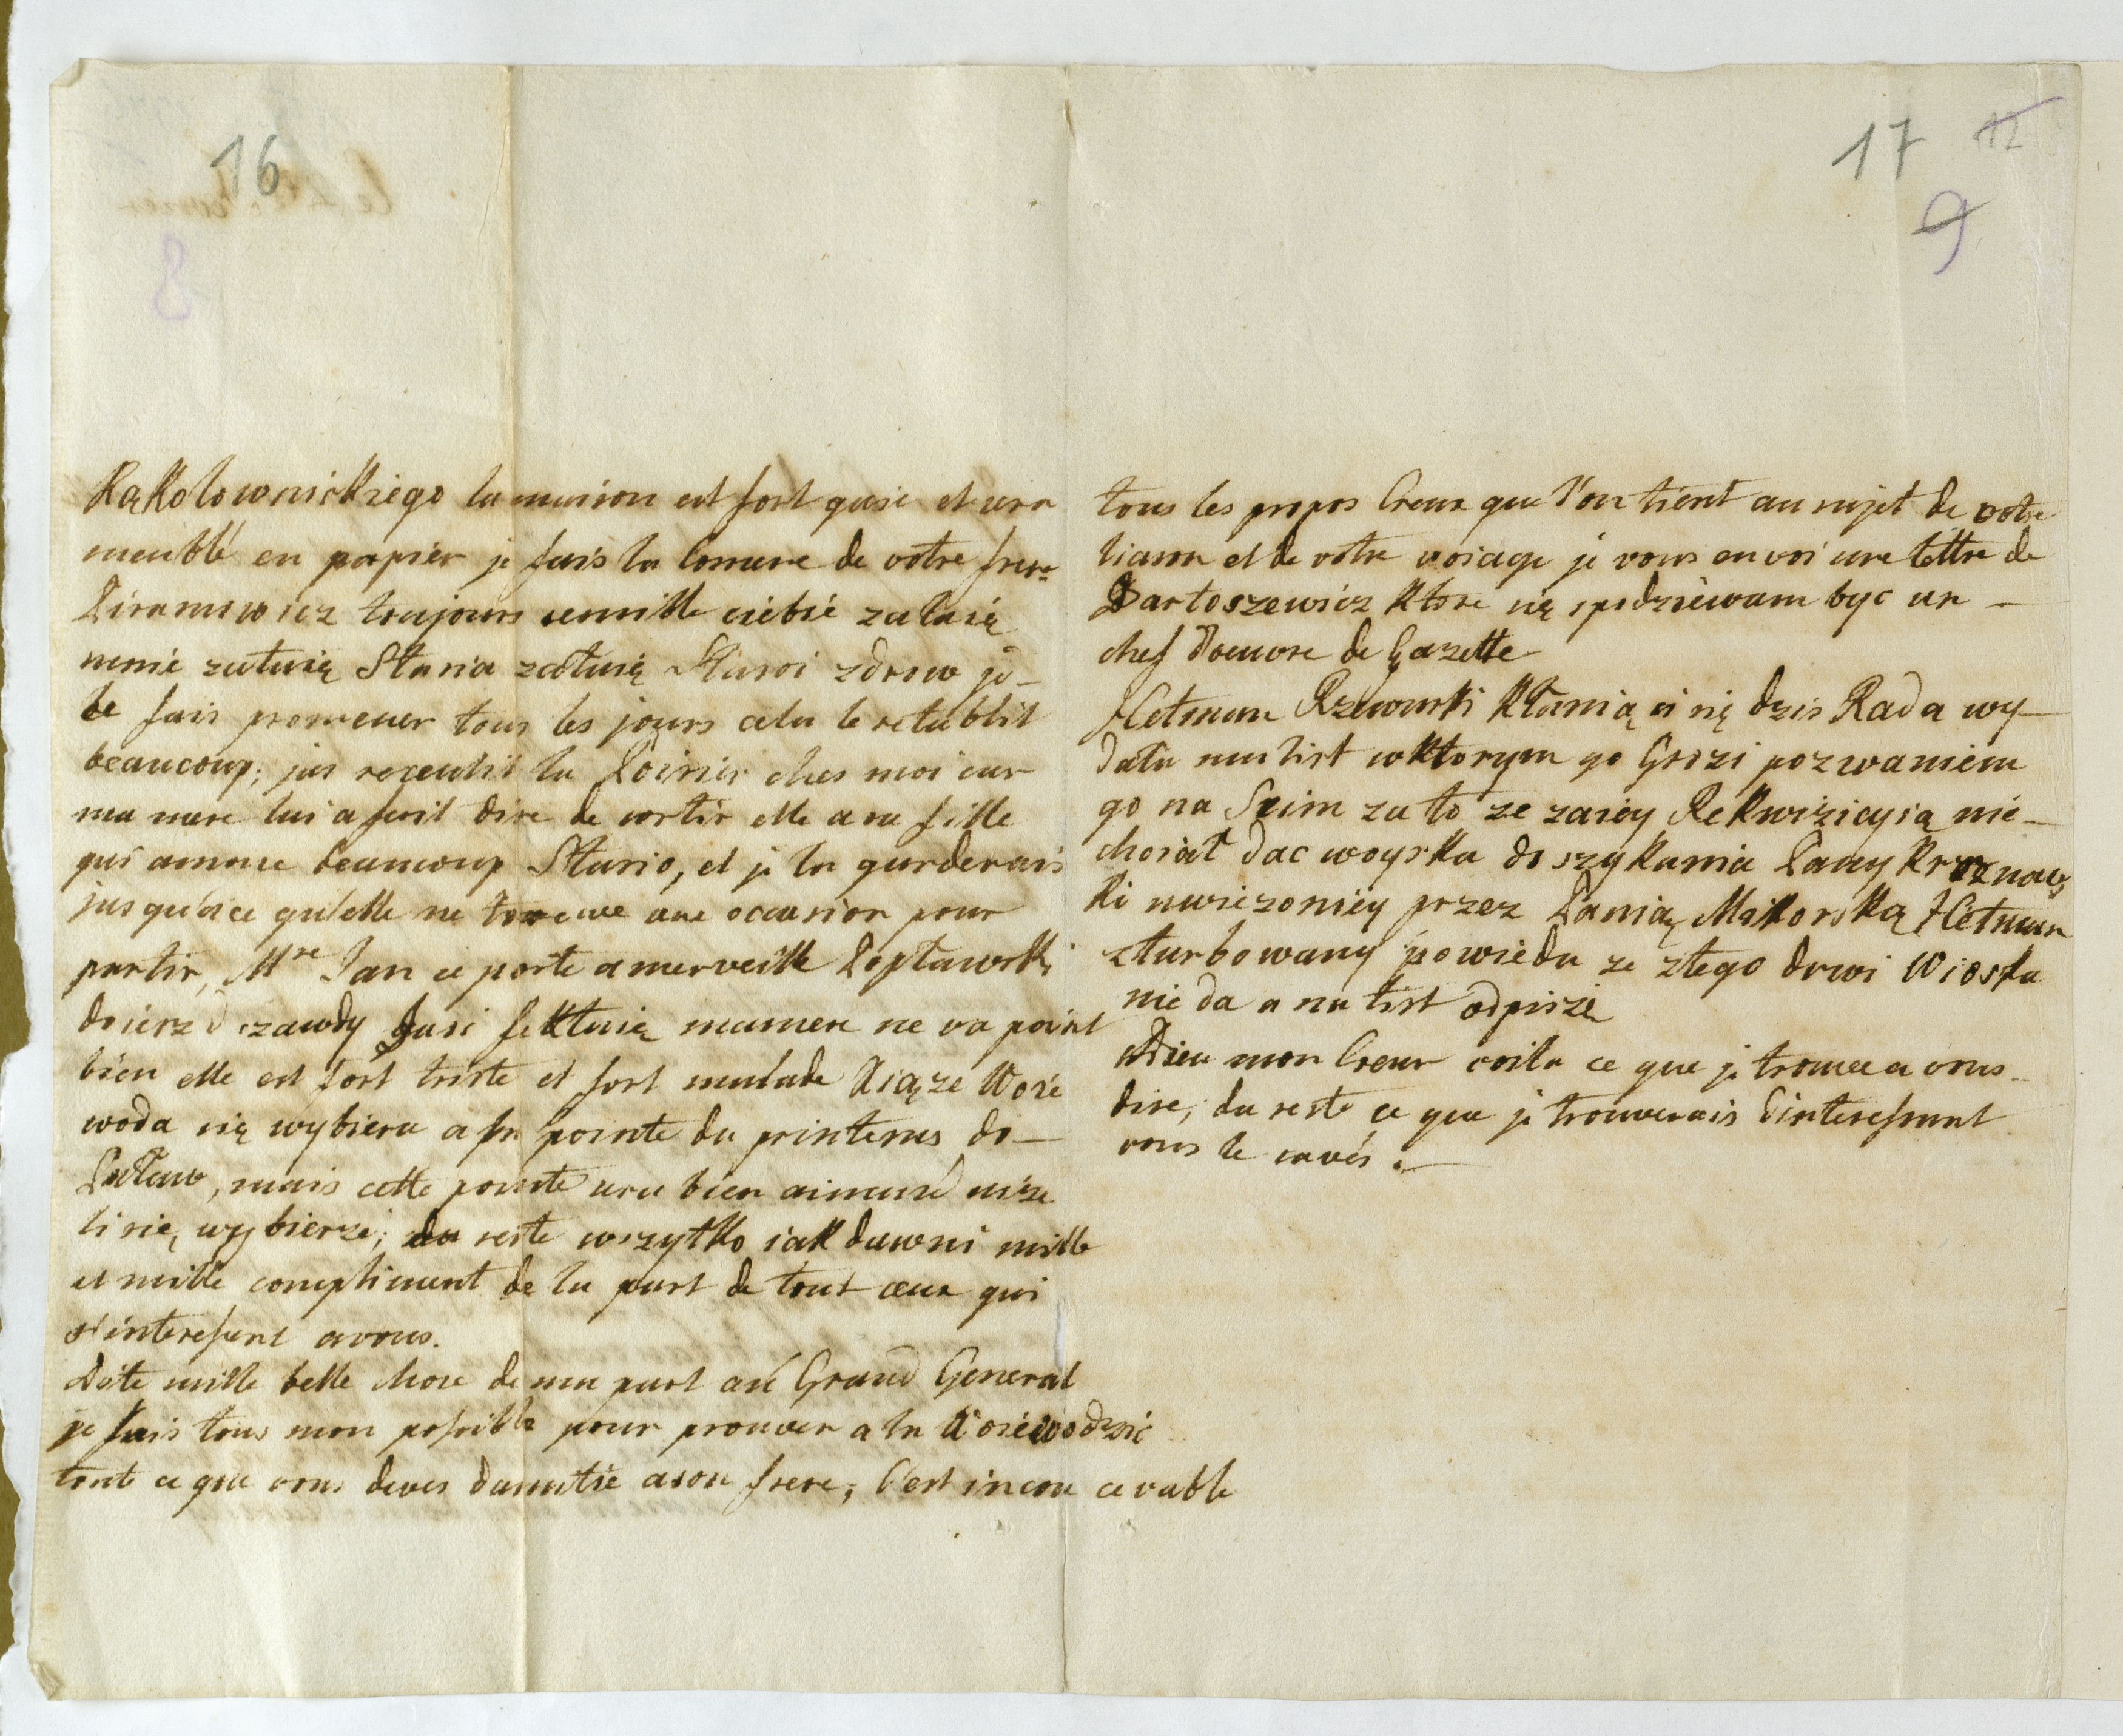 16
8
Rąkolownickiego la maison est fort gaie et sera
meublé en papier je fais la comere de votre frere
Piramowicz toujours semille ciebie załuią
mnie załuią Stasia załuią Stasioi zdrow je
le fais promener tous les jours cela le retablit
beaucoup; jai receuhit la Poirier ches moi car
ma mere lui a fait dire de sortir elle a sa fille
qui amuse beaucoup Stasio, et je la garderais
jusqu'a ce qu'elle ne trouve une occasion pour
partir, Mre Jan ce porte a merveille Poptawski
zawdy mamere ne va point
bien elle est fort triste et fort malade Xiąze Woie
woda się wybiera a la pointe du printems do
Puław, mais cette pointe sera bien aimused nize
li się wybierze; du reste wszytko iak dawni mille
et mille compliment de la part de tout ceux qui
s'interessent a vous.
Dite mille belle chose de ma part au Grand General
je fais tous mon possible pour prouver a la Woiewodzic
tout ce que vous deves damitie a son frere, c'est inconcevable
17 12
9
tous les propos creux que l'on tient au sujet de votre
liason et de votre voiage je vous envoi une lettre de
Bartoszewicz ktore się spodziewam byc un
chef doeuvre de Gazette
Hetman Rzewuski kłania ci się dzis Rada wy
dała mu list wktorym go Grozi pozwaniem
go na Seim za to ze zaiey Rekwizicyią nie
chciał dac woyska do szykania Panny Kruznaws
ki uwiezoniey przez Panią Maikorską Hetman
zturbowany powieda ze złego drwi Wioska
nie da a na list odpisze
Adieu mon Coeur voila ce que je trouve a vous
dire, du reste ce que je trouverais d'interessant
vous le savés.